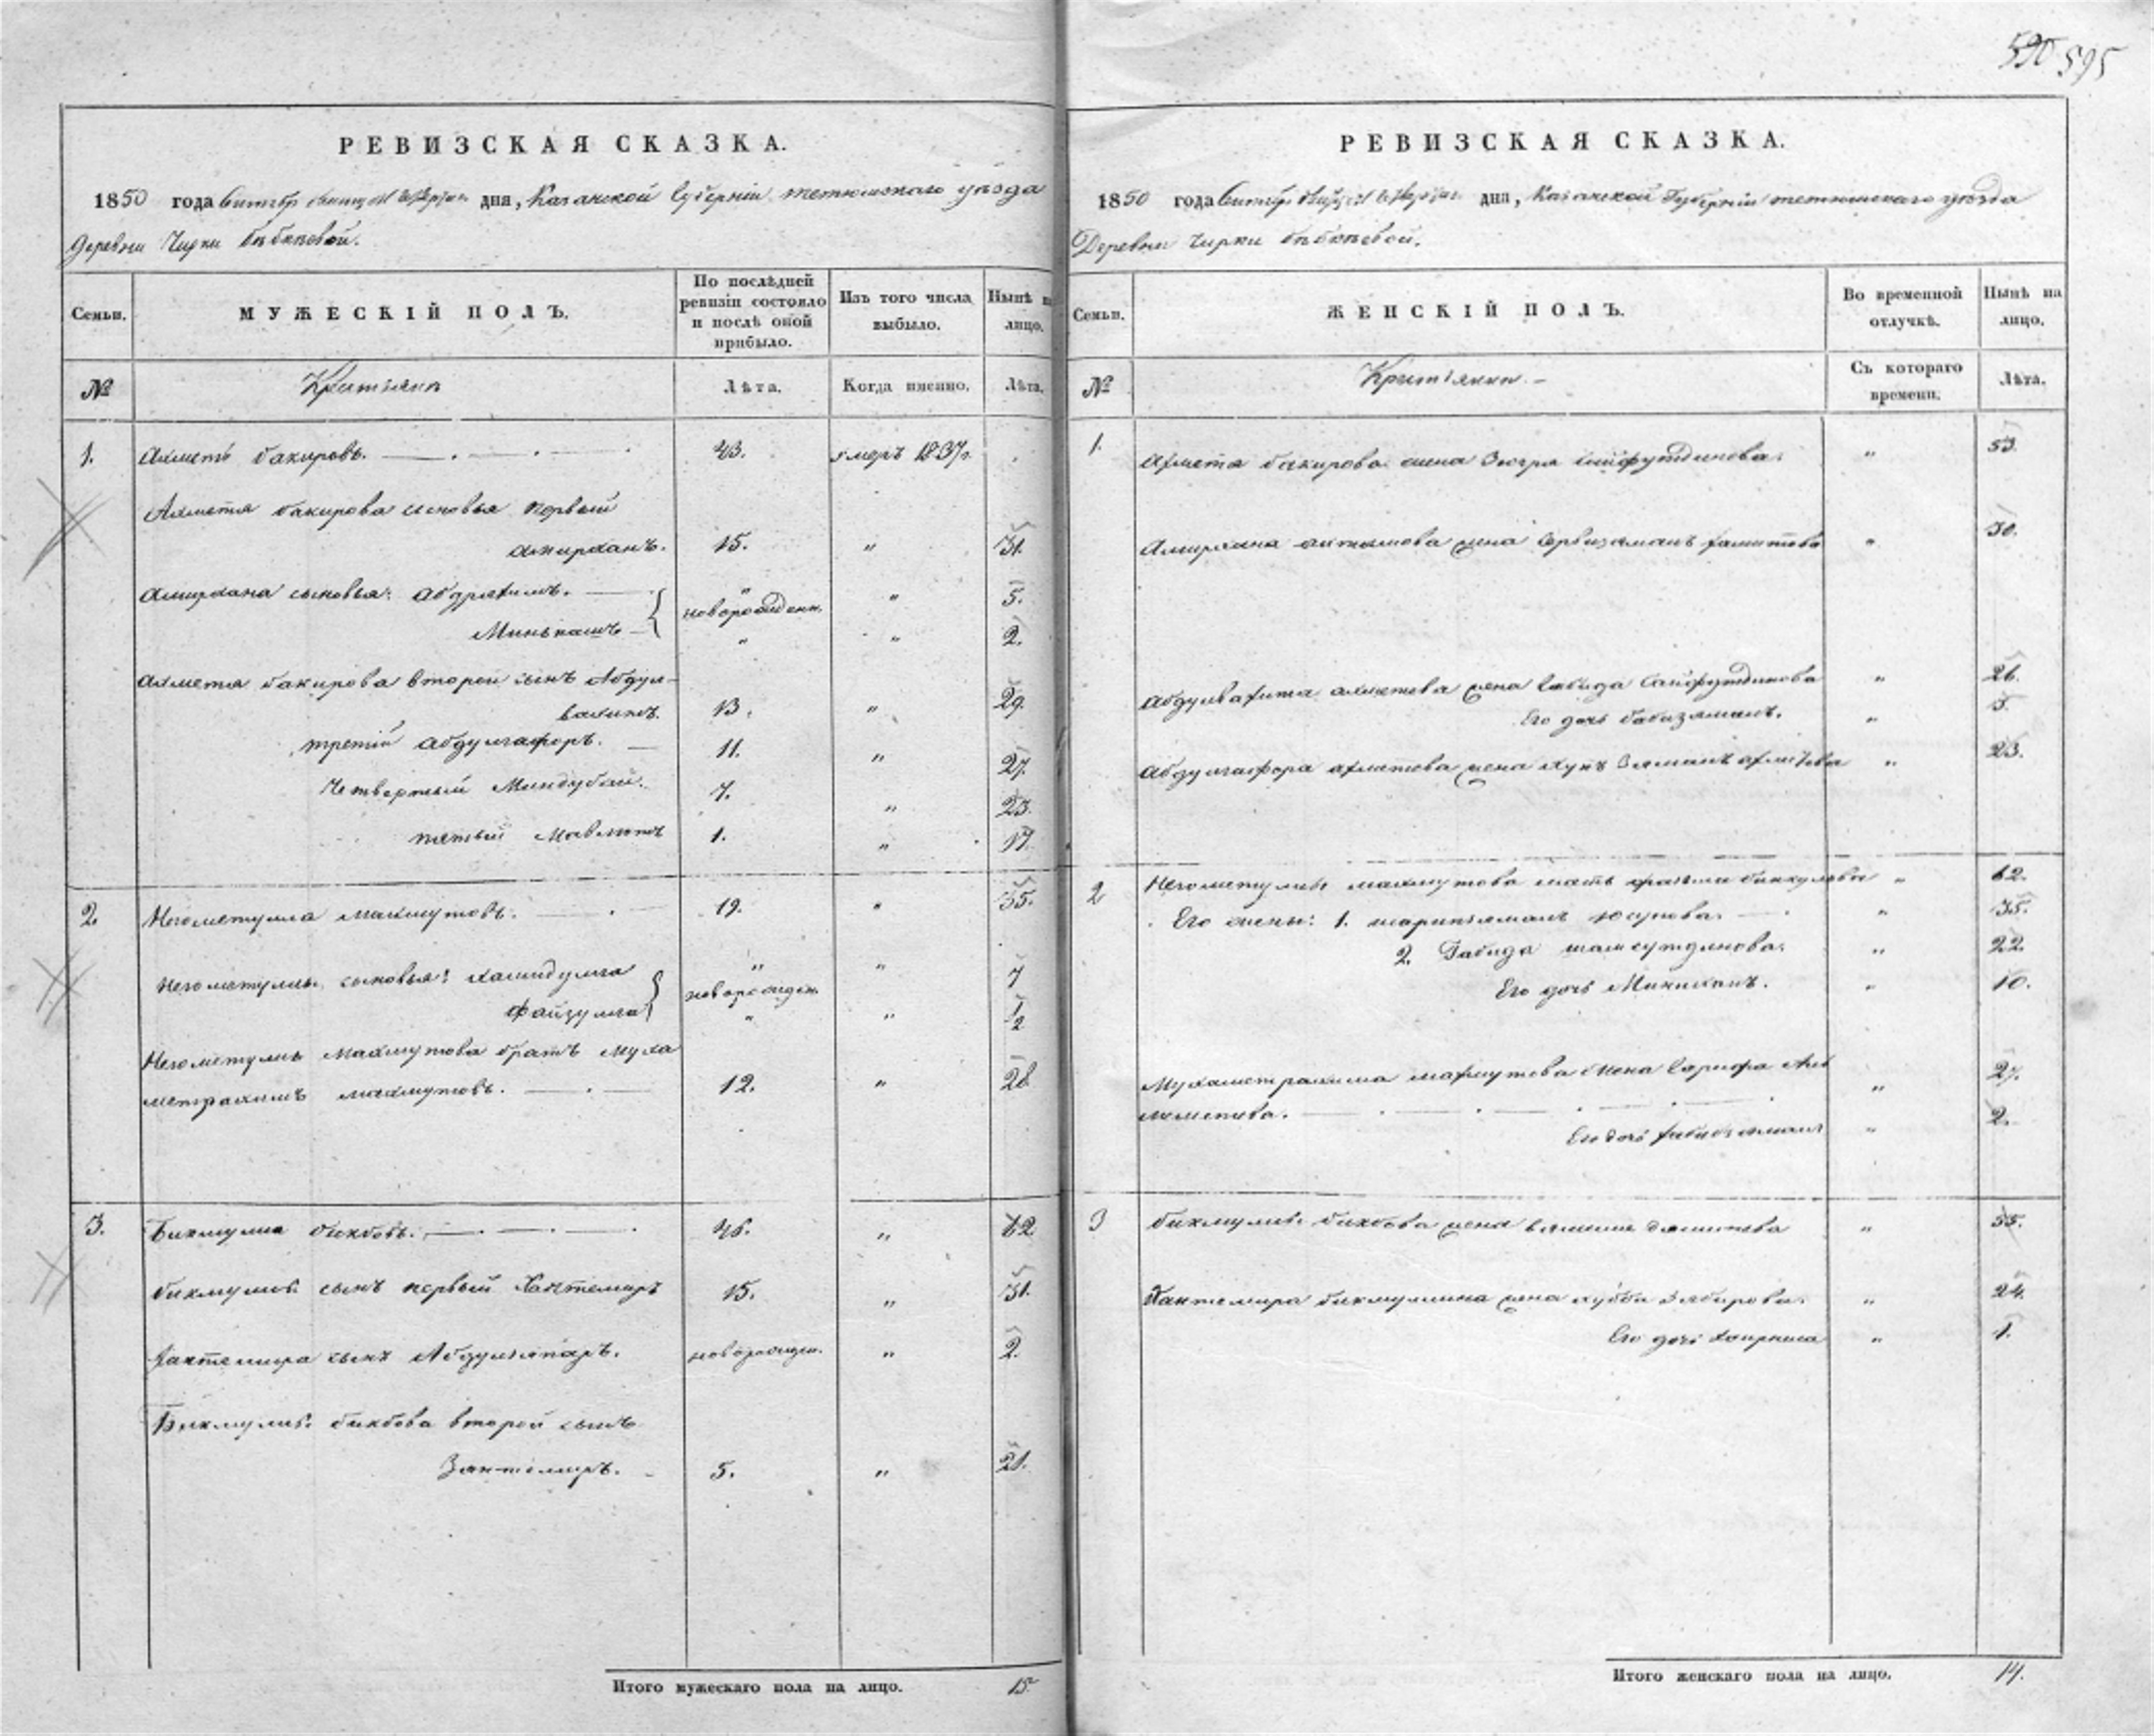 590 595
РЕВИЗСКАЯ СКАЗКА.
1850 года дня, Казанской Губерніи тетюшскаго уѣзда
Деревни Чирки бебкевой.
Семьи. МУЖЕСКІЙ ПОЛЪ. По послѣдней ревизіи состояло и послѣ оной прибыло. Изъ того числа выбыло. Нынѣ на лицо.
№ Лѣта. Когда именно. Лѣта.
1. Ахметъ бакировъ. 43. умеръ 1837г.
Ахметя бакирова сыновья первый
амирханъ. 15. " 31.
амирхана сыновья: абдряхимъ. " новорожден. " 5.
Минькашъ " " 2.
ахметя бакирова второй сынъ Абдул-
вахитъ. 13. " 29.
третій абдулгафоръ. 11. " 27.
четвертый Миндубай. 7. " 23.
пятый Мавлютъ 1. " 17.
2. Негометулла махмутовъ. 19. " 35.
Негометуллы сыновья: хамидулла " новорожден. " 7
Файзулла " " 1/2
Негометуллы Махмутова братъ муха
метрахимъ махмутовъ. 12. " 28
3. Бикмулла бикбовъ. 46. " 62
бикмуллы сынъ первый Хантемиръ 15. " 31.
хантемира сынъ Абдулзяпаръ. новорожден. " 2.
Бикмуллы бикбова второй сынъ
Зантемиръ. 5. " 21.
Итого мужескаго пола на лицо. 15
РЕВИЗСКАЯ СКАЗКА.
1850 года дня, Казанской Губерніи тетюшскаго уѣзда
Деревни Чирки бебкевой.
Семьи. ЖЕНСКІЙ ПОЛЪ. Во временной отлучкѣ. Нынѣ на лицо.
№ Съ котораго времени. Лѣта.
1. Ахметя бакирова жена Зюгря сайфутдинова. " 53.
Амирхана ахтямова жена хамитова " 30.
Абдулвахита ахметова жена Сайфутдинова " 26.
Его дочь бабизямалъ. " 5.
Абдулгафора ахметова жена " 23.
2 Негометуллы махмутова мать биккулова " 62.
Его жены: 1. шарипзямалъ юсупова. " 35.
2. Габида шамсутдинова. " 22.
Его дочь Миникамъ. " 10.
Мухаметрахима махмутова жена Сарифа Аль " 27.
меметева.
Его дочь " 2.
3 бикмуллы бикбова жена " 55.
Хантемира бикмуллина жена хубби зябирова. " 24.
Его дочь хаирниса " 1.
Итого женскаго пола на лицо. 14.